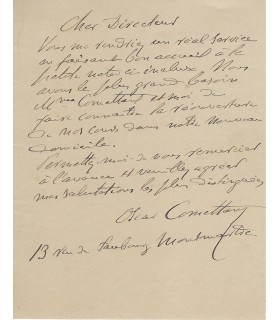 Cher Directeur
Vous me rendriez un réel service
en faisant bon accueil à la
petite note ci-incluse. Nous
avons le plus grand besoin
Mme Comettant et moi de
faire connaître la réouverture
de nos cours dans notre nouveau
domicile.
Permettez-moi de vous remercier
à l'avance et veuillez agréer
mes salutations les plus distinguées
Oscar Comettant
13 rue du Faubourg Montmartre